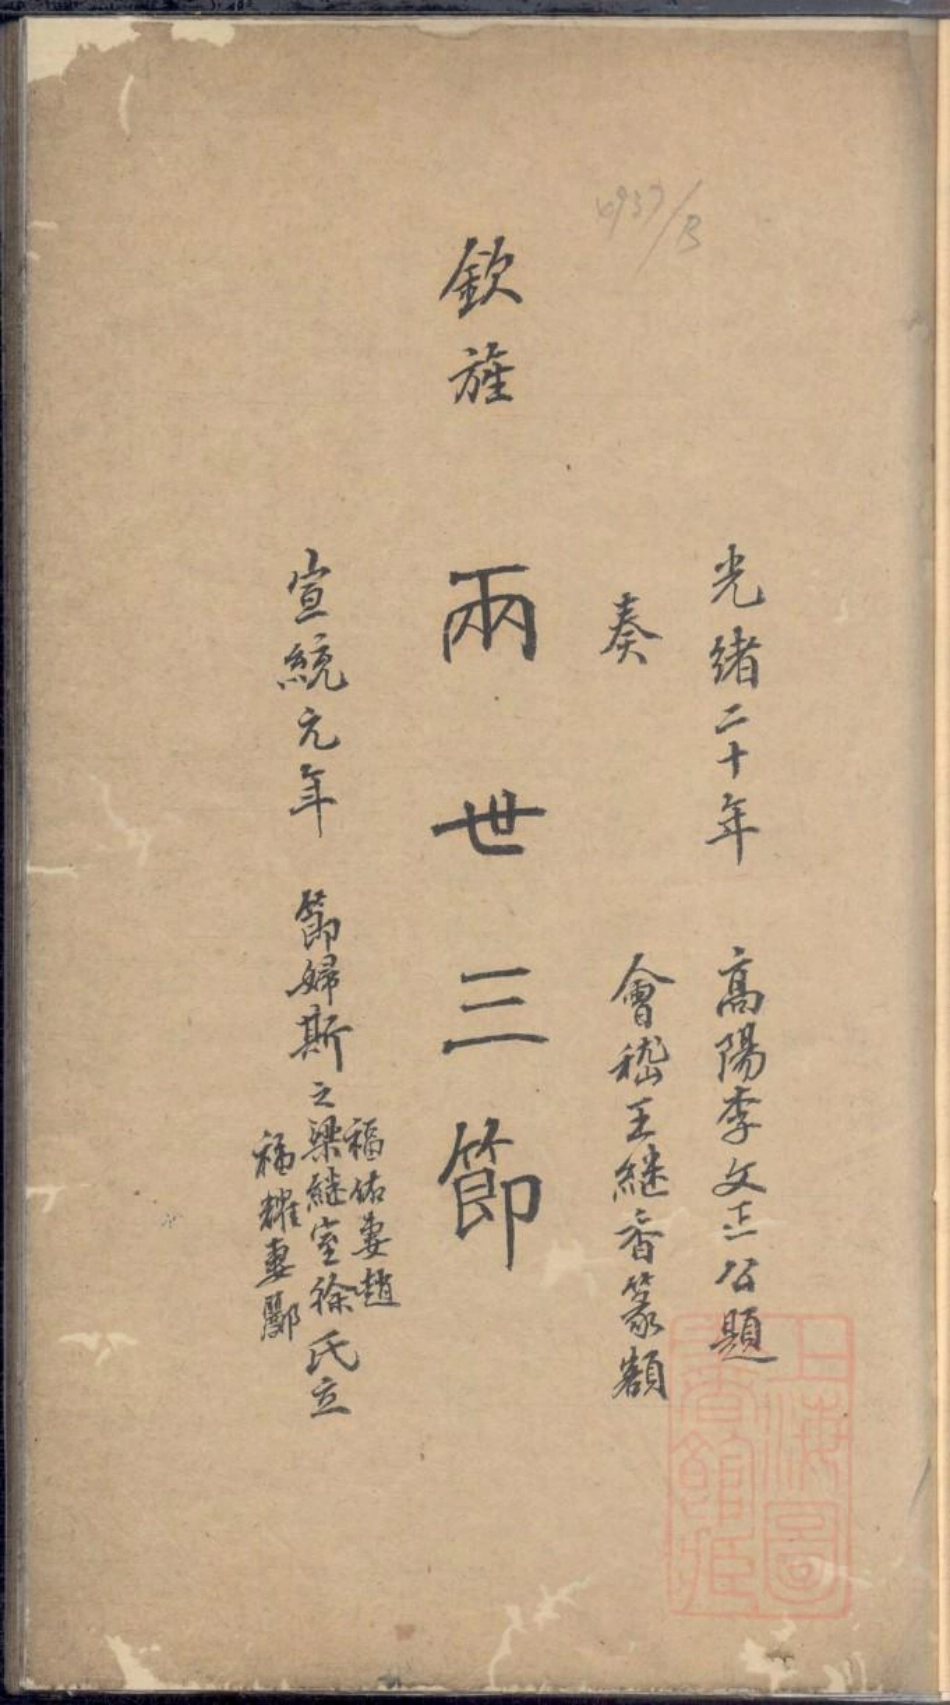 光緒二十年 高陽李文正公題
奏 會嵇王繼香篆額
欽旌 兩世三節
福佑妻趙
宣統元年 節婦斯之梁繼室徐氏立
福耀妻酈
上海圖書館藏